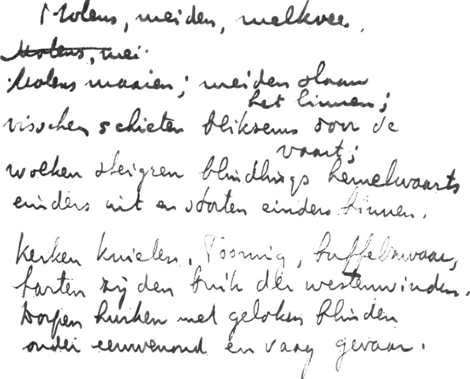 Molens, meiden, melkvee.
Molens, mei
Molens maaien; meiden slaan
het linnen;
visschen schieten bliksems door de
vaart;
wolken steigren blindlings hemelwaarts
einders uit en storten einders binnen.
Kerken knielen. Toornig, buffelzwaar,
torsen zij den buik der westenwinden.
Dorpen hurken met geloken blinden
onder eeuwenoud en vaag gevaar.